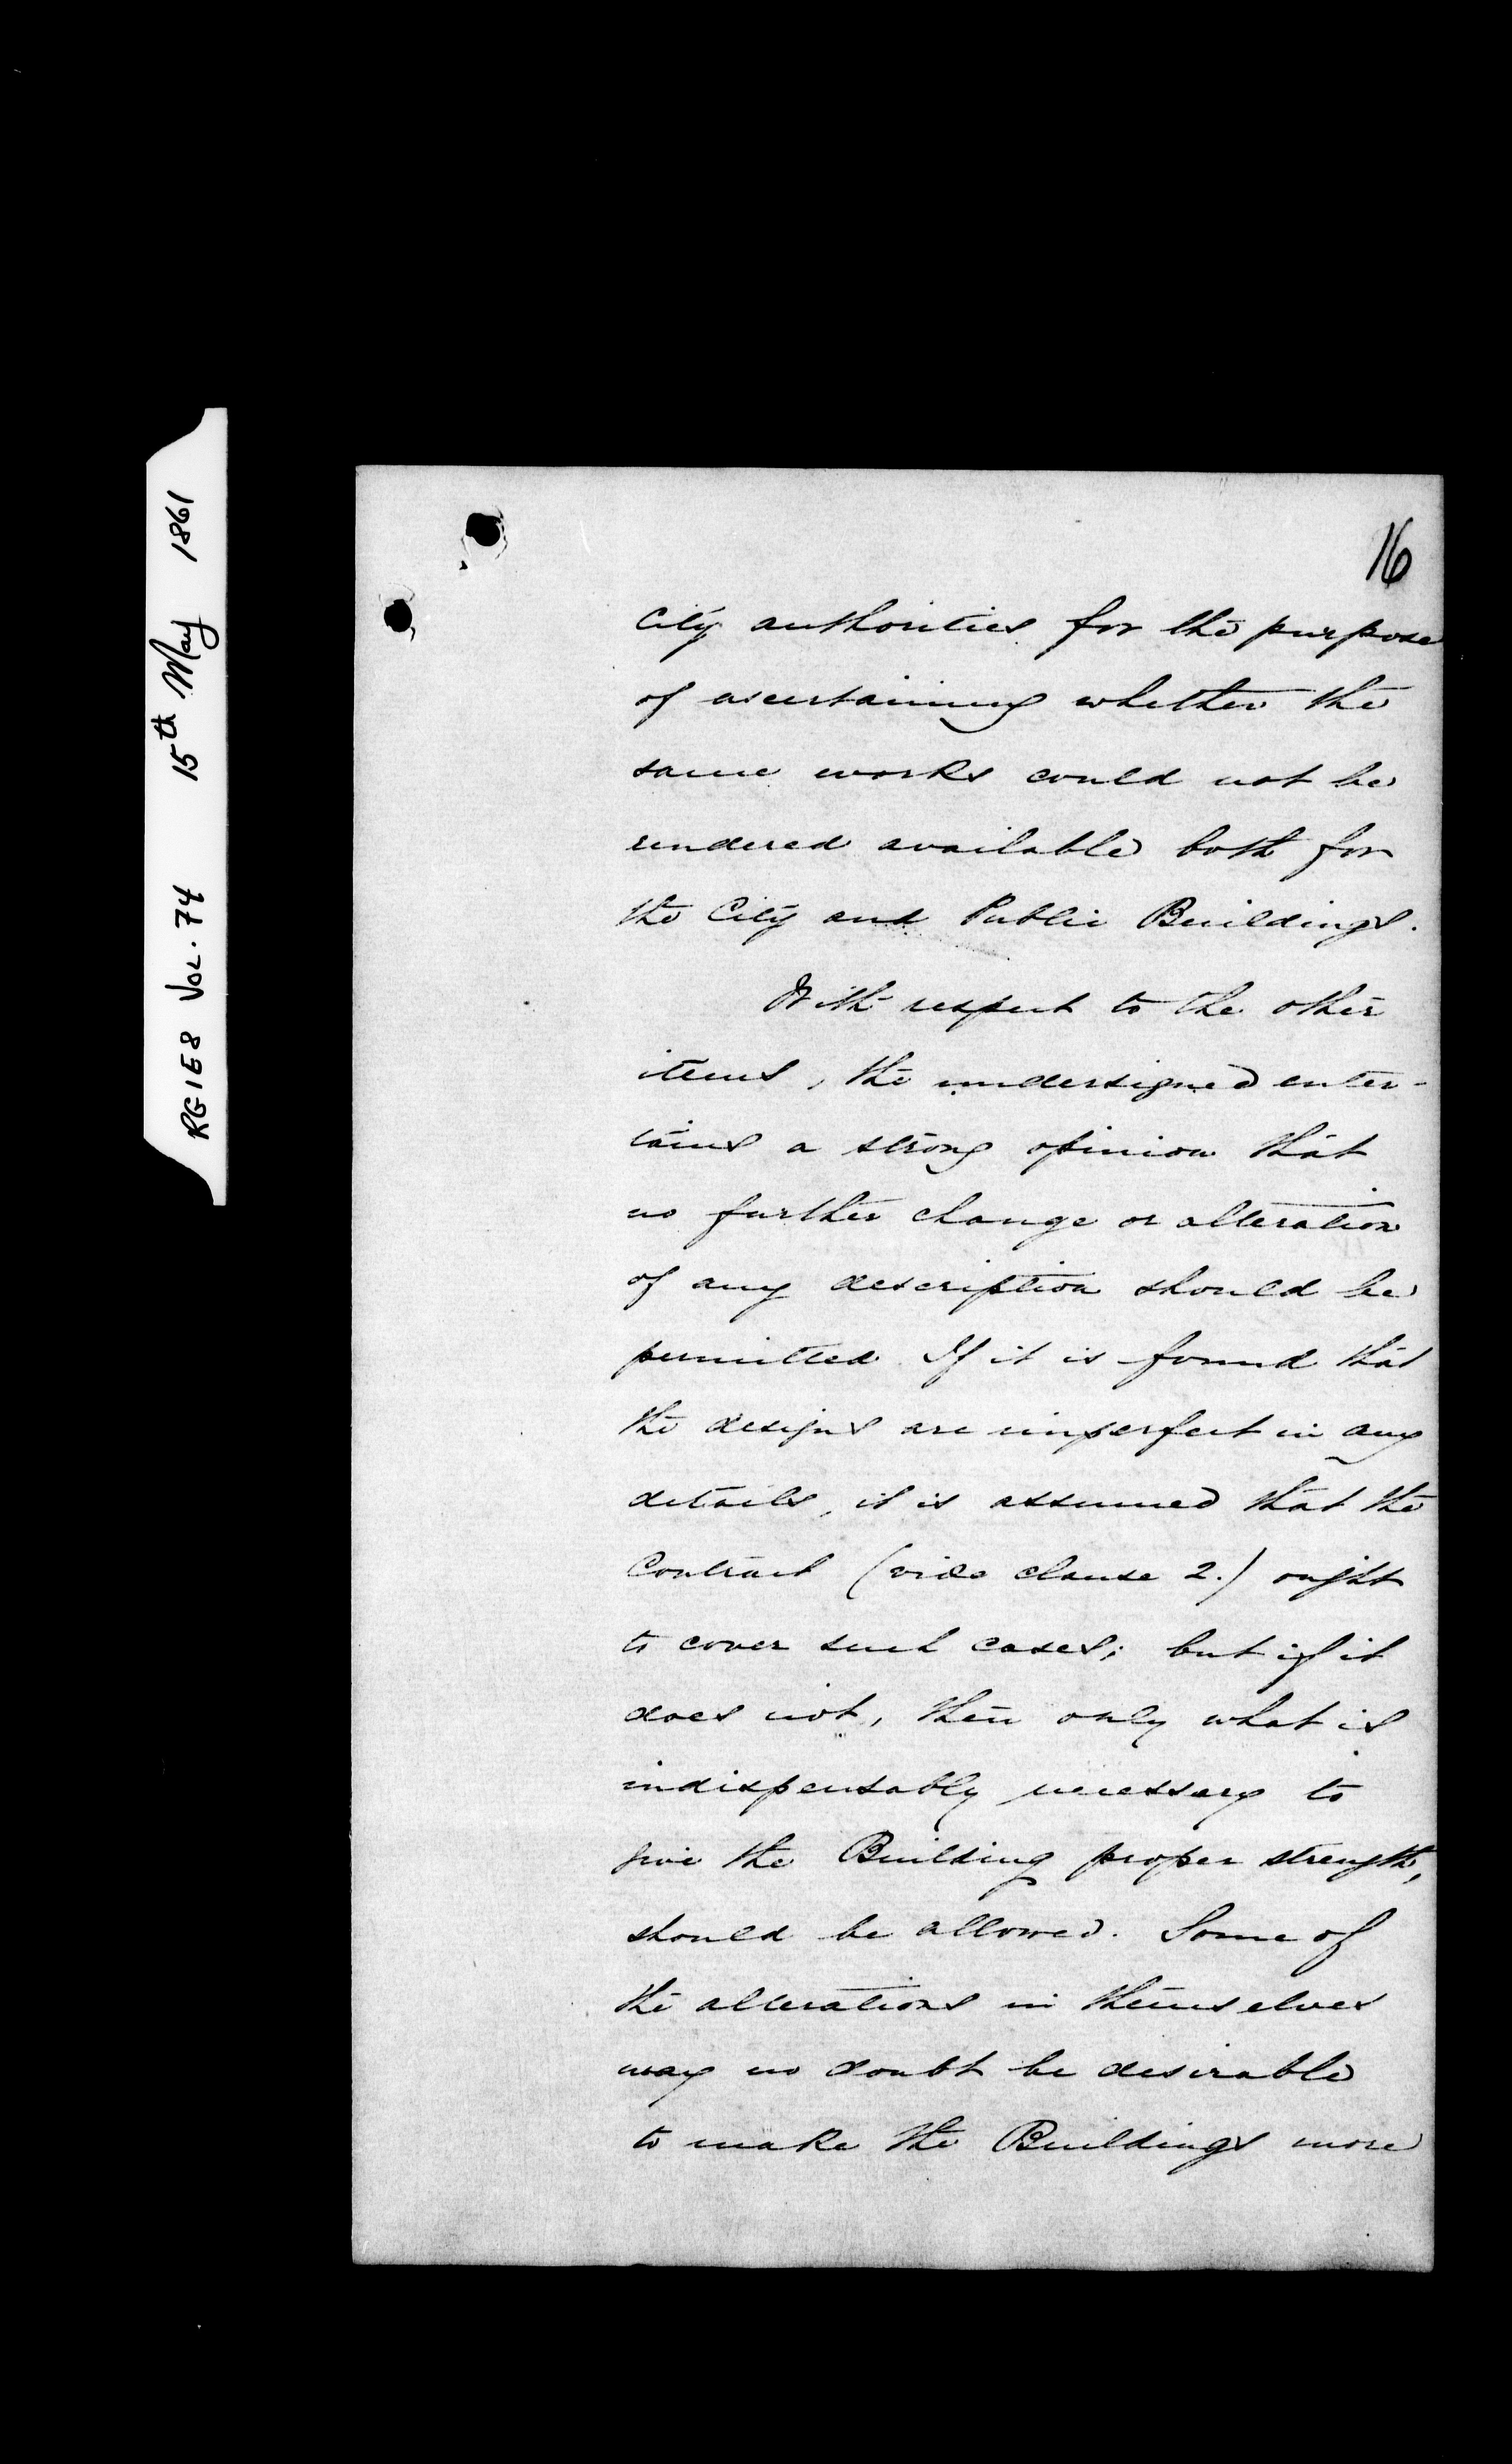 RG1E8 VOL. 74 15th May 1861
16
City authorities for the purpose
of ascertaining whether the
same works could not be
rendered available both for
the City and Public Buildings.
With respect to the other
items, the undersigned enter-
tains a strong opinion that
no further change or alteration
of any description should be
permitted. If it is found that
the designs are imperfect in any
details, it is assumed that the
Contract (vide clause 2.) ought
to cover such cases; but if it
does not, then only what is
indispensably necessary to
give the Building proper strength,
should be allowed. Some of
the alterations in themselves
may no doubt be desirable
to make the Buildings more